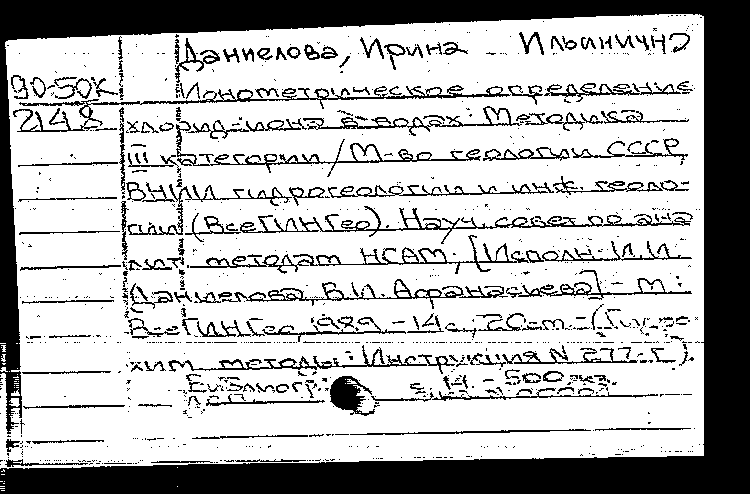 Даниелова, Ирина Ильинична
90-50К Ионометрическое определение
2148 хлорид-иона в водах: Методика
III категории / М-во геологии СССР,
ВНИИ гидрогеологии и инж. геоло-
гии (ВсеГИНГео). Науч. совет по ана
лит. методам НСАМ; [Исполн. И.И.
Даниелова, В.И. Афанасьева] - М:
ВсеГИНГео, 1989. - 14с.; 20см. - (Гидро
хим. методы: Инструкция N 277-Г).
Библиогр.: с. 14. - 500 экз.